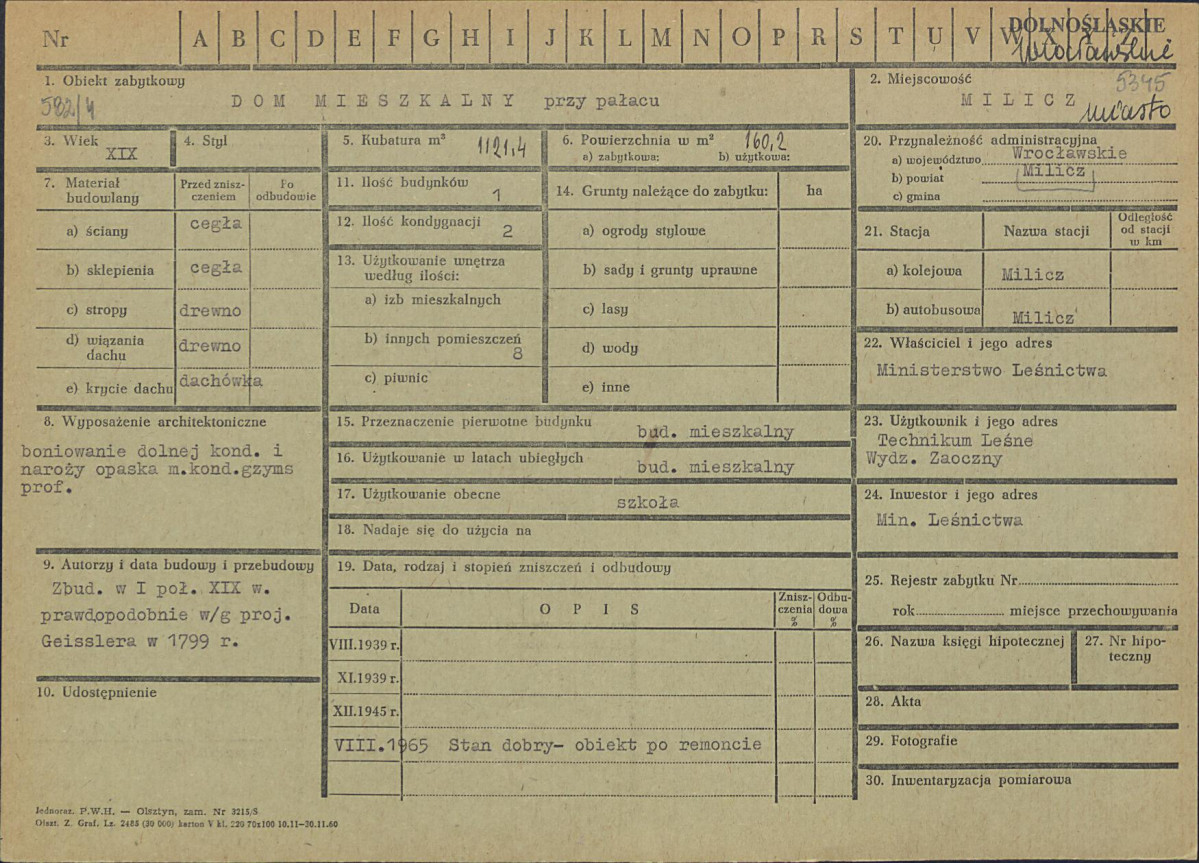 Nr A B C D E F G H I J K L M N O P R S T U V W DOLNOŚLĄSKIE
Wrocławskie
1. Obiekt zabytkowy
582/4
DOM MIESZKALNY przy pałacu
2. Miejscowość
5345
MILICZ
miasto
3. Wiek
XIX
4. Styl
5. Kubatura m³ 1121,4
6. Powierzchnia w m² 160,2
a) zabytkowa: b) użytkowa:
20. Przynależność administracyjna
a) województwo Wrocławskie
b) powiat Milicz
c) gmina
7. Materiał budowlany
Przed zniszczeniem
Po odbudowie
a) ściany cegła
b) sklepienia cegła
c) stropy drewno
d) wiązania dachu drewno
e) krycie dachu dachówka
11. Ilość budynków 1
12. Ilość kondygnacji 2
13. Użytkowanie wnętrza
według ilości:
a) izb mieszkalnych
b) innych pomieszczeń 8
c) piwnic
14. Grunty należące do zabytku: ha
a) ogrody stylowe
b) sady i grunty uprawne
c) lasy
d) wody
e) inne
21. Stacja Nazwa stacji
Odległość
od stacji
w km
a) kolejowa Milicz
b) autobusowa Milicz
22. Właściciel i jego adres
Ministerstwo Leśnictwa
8. Wyposażenie architektoniczne
boniowanie dolnej kond. i
naroży opaska m.kond.gzyms
prof.
15. Przeznaczenie pierwotne budynku bud. mieszkalny
16. Użytkowanie w latach ubiegłych bud. mieszkalny
17. Użytkowanie obecne szkoła
18. Nadaje się do użycia na
23. Użytkownik i jego adres
Technikum Leśne
Wydz. Zaoczny
24. Inwestor i jego adres
Min. Leśnictwa
9. Autorzy i data budowy i przebudowy
Zbud. w I poł. XIX w.
prawdopodobnie w/g proj.
Geisslera w 1799 r.
10. Udostępnienie
19. Data, rodzaj i stopień zniszczeń i odbudowy
Data OPIS
Zniszczenia %
Odbudowa %
VIII.1939 r.
XI.1939 r.
XII.1945 r.
VIII.1965 Stan dobry- obiekt po remoncie
25. Rejestr zabytku Nr
rok miejsce przechowywania
26. Nazwa księgi hipotecznej
27. Nr hipoteczny
28. Akta
29. Fotografie
30. Inwentaryzacja pomiarowa
Jednoraz. P.W.H. — Olsztyn, zam. Nr 3215/S
Olszt. Z. Graf. Lz. 2485 (30 000) karton V kl. 220 70x100 10.11—30.11.60